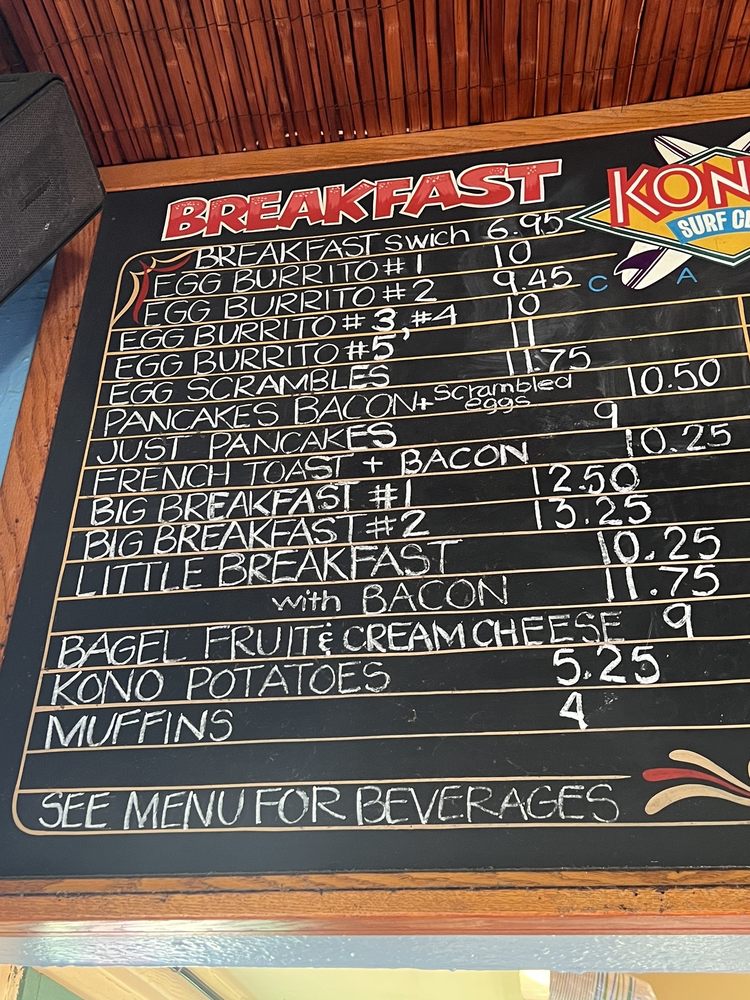 BREAKFAST
KON
SURF CL
BREAKFAST SWICH 6.95
EGG BURRITO #1 10
EGG BURRITO #2 9.45
C A
EGG BURRITO #3, #4 10
EGG BURRITO #5 11
EGG SCRAMBLES 11.75
PANCAKES BACON + scrambled eggs 10.50
JUST PANCAKES 9
FRENCH TOAST + BACON 10.25
BIG BREAKFAST #1 12.50
BIG BREAKFAST #2 13.25
LITTLE BREAKFAST 10.25
with BACON 11.75
BAGEL FRUIT & CREAM CHEESE 9
KONO POTATOES 5.25
MUFFINS 4
SEE MENU FOR BEVERAGES